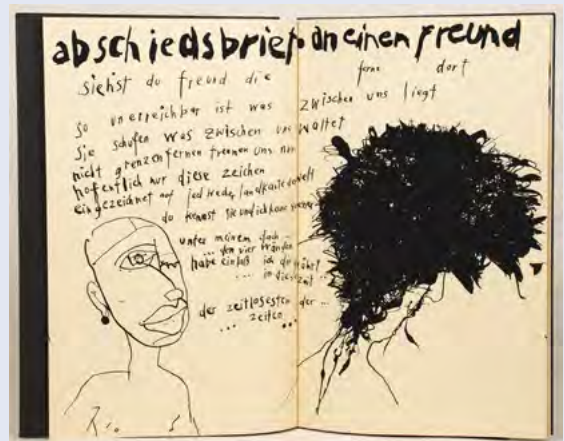 abschiedsbrief an einen freund
siehst du freund die ferne dort
so unerreichbar ist was zwischen uns liegt
sie schufen was zwischen uns waltet
nicht grenzen fernen trennen uns nur
hofentlich nur diese zeichen
eingezeichnet auf jed weder landkarte der welt
du kennst sie und ich kenne
unter meinem dach ..
... den vier wänden
habe einlaß ich dir
.... in die zeit ..
der zeitlosesten der ...
... zeiten ...